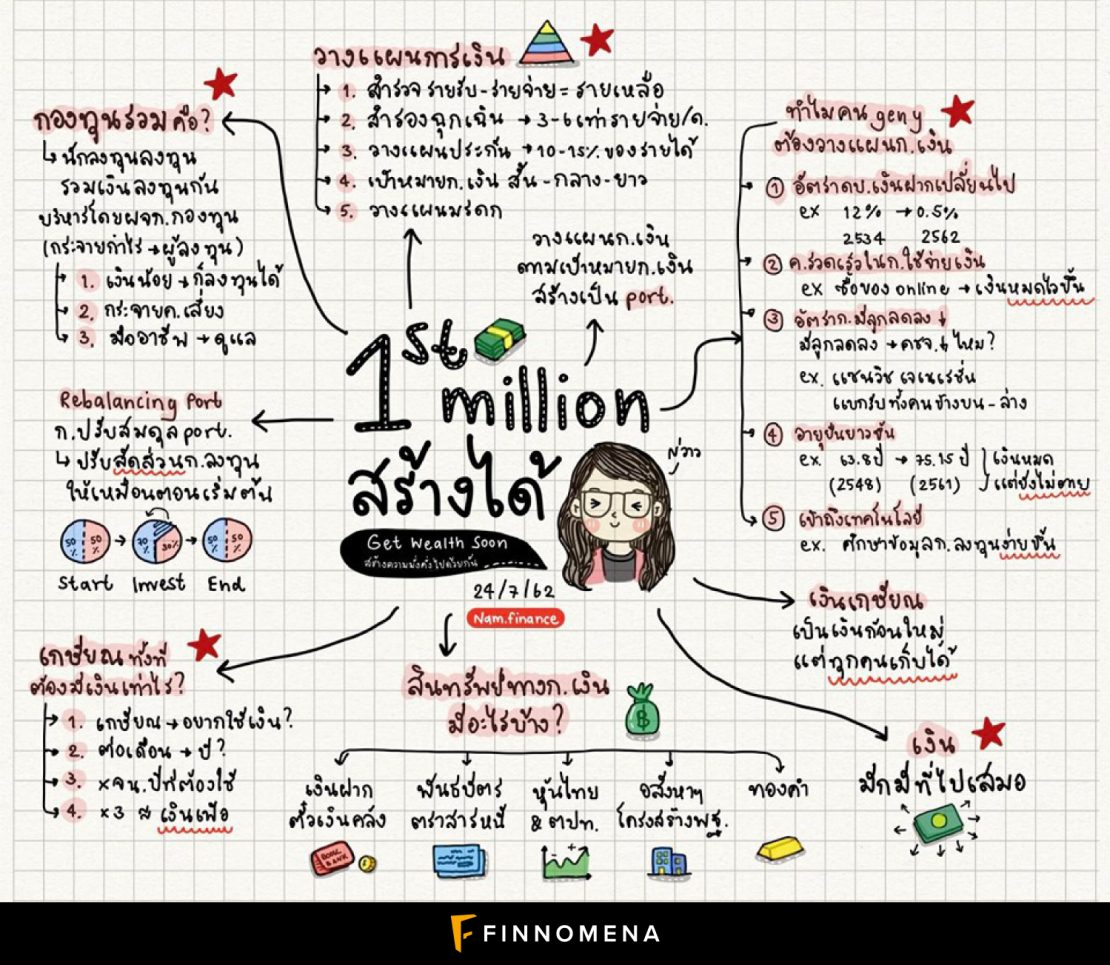 วางแผนการเงิน
1. สำรวจ รายรับ - รายจ่าย = รายเหลือ
2. สำรองฉุกเฉิน → 3-6 เท่ารายจ่าย/ด.
3. วางแผนประกัน → 10-15% ของรายได้
4. เป้าหมายก.เงิน สั้น - กลาง - ยาว
5. วางแผนมรดก
กองทุนรวม คือ?
↳ นักลงทุนลงทุน
รวมเงินลงทุนกัน
บริหารโดยผจก.กองทุน
(กระจายกำไร → ผู้ลงทุน)
1. เงินน้อย → ก็ลงทุนได้
2. กระจายค.เสี่ยง
3. มืออาชีพ → ดูแล
ทำไมคน geny
ต้องวางแผนก.เงิน
① อัตราดบ.เงินฝากเปลี่ยนไป
ex 12% → 0.5%
2534 2562
② ค.รวดเร็วในก.ใช้จ่ายเงิน
ex ซื้อของ online → เงินหมดไวขึ้น
③ อัตราก.มีลูกลดลง ↓
มีลูกลดลง → คชจ.↓ ไหม?
ex. แซนวิช เจเนเรชั่น
แบกรับทั้งคนข้างบน - ล่าง
④ อายุยืนยาวขึ้น
ex. 63.8 ปี → 75.15 ปี เงินหมด
(2548) (2561) แต่ยังไม่ตาย
⑤ เข้าถึงเทคโนโลยี
ex. ศึกษาข้อมูลก.ลงทุนง่ายขึ้น
วางแผนก.เงิน
ตามเป้าหมายก.เงิน
สร้างเป็น port.
1st
million
สร้างได้
Get Wealth Soon
สร้างความมั่งคั่งไปด้วยกัน
24/7/62
Nam.finance
Rebalancing Port
ก.ปรับสมดุล port.
↳ ปรับสัดส่วนก.ลงทุน
ให้เหมือนตอนเริ่มต้น
50% 50% → 70% 30% → 50% 50%
Start Invest End
เกษียณ ทั้งที
ต้องมีเงินเท่าไร?
1. เกษียณ → อยากใช้เงิน?
2. ต่อเดือน → ปี?
3. × จน.ปีที่ต้องใช้
4. ×3 ≈ เงินเฟ้อ
สินทรัพย์ทางก.เงิน
มีอะไรบ้าง?
฿
เงินฝาก
ตั๋วเงินคลัง
พันธบัตร
ตราสารหนี้
หุ้นไทย
& ตปท.
อสังหาฯ
โครงสร้างพฐ.
ทองคำ
เงินเกษียณ
เป็นเงินก้อนใหญ่
แต่ทุกคนเก็บได้
เงิน
มักมีที่ไปเสมอ
FINNOMENA